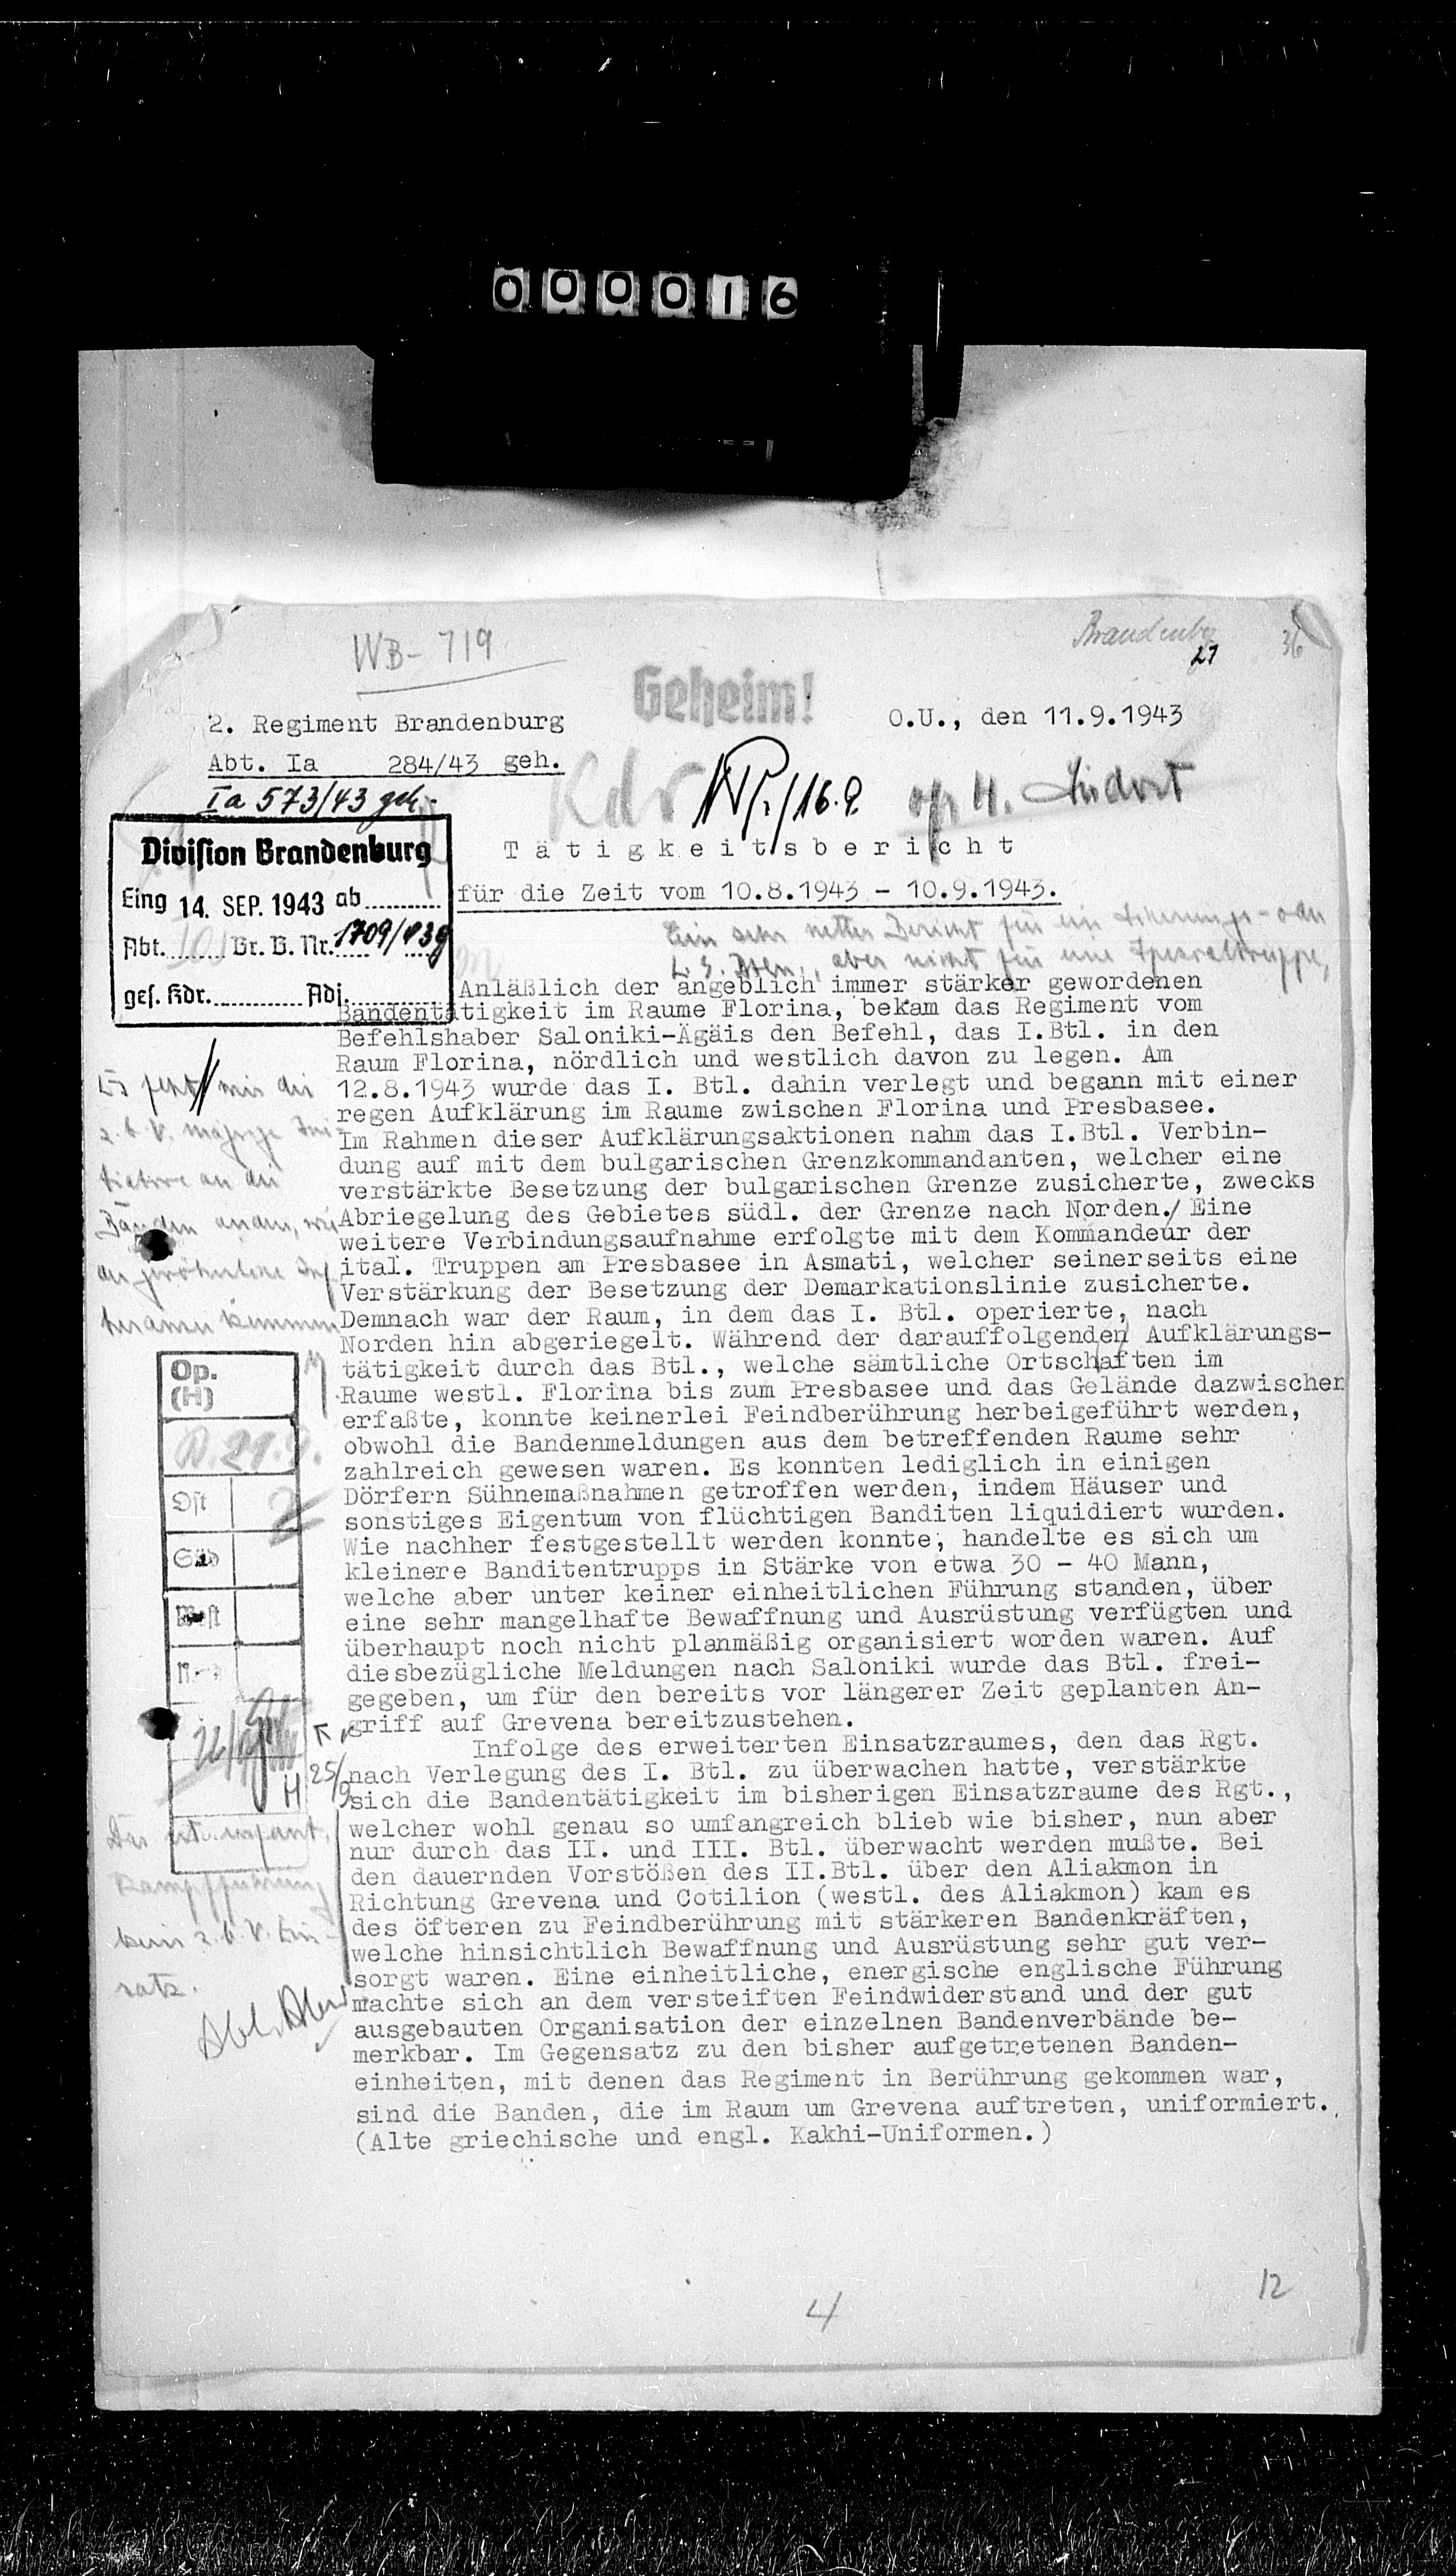 000016
WB - 719
Brandenbg
27
36
Geheim!
2. Regiment Brandenburg
O.U., den 11.9.1943
Abt. Ia 284/43 geh.
Ia 573/43 geh.
Kdr
/16.9.
op H. Südost
Division Brandenburg
Eing 14. SEP. 1943 ab
Abt. Br. B. Nr. 1709/43g
ges. Kdr. Adj.
Tätigkeitsbericht
für die Zeit vom 10.8.1943 - 10.9.1943.
Ein sehr netter Bericht für ein Sicherungs- oder
L.S. Btln., aber nicht für eine Spezialtruppe,
Anläßlich der angeblich immer stärker gewordenen
Bandentätigkeit im Raume Florina, bekam das Regiment vom
Befehlshaber Saloniki-Ägäis den Befehl, das I.Btl. in den
Raum Florina, nördlich und westlich davon zu legen. Am
12.8.1943 wurde das I. Btl. dahin verlegt und begann mit einer
regen Aufklärung im Raume zwischen Florina und Presbasee.
Im Rahmen dieser Aufklärungsaktionen nahm das I.Btl. Verbin-
dung auf mit dem bulgarischen Grenzkommandanten, welcher eine
verstärkte Besetzung der bulgarischen Grenze zusicherte, zwecks
Abriegelung des Gebietes südl. der Grenze nach Norden./ Eine
weitere Verbindungsaufnahme erfolgte mit dem Kommandeur der
ital. Truppen am Presbasee in Asmati, welcher seinerseits eine
Verstärkung der Besetzung der Demarkationslinie zusicherte.
Demnach war der Raum, in dem das I. Btl. operierte, nach
Norden hin abgeriegelt. Während der darauffolgenden Aufklärungs-
tätigkeit durch das Btl., welche sämtliche Ortschaften im
Raume westl. Florina bis zum Presbasee und das Gelände dazwischen
erfaßte, konnte keinerlei Feindberührung herbeigeführt werden,
obwohl die Bandenmeldungen aus dem betreffenden Raume sehr
zahlreich gewesen waren. Es konnten lediglich in einigen
Dörfern Sühnemaßnahmen getroffen werden, indem Häuser und
sonstiges Eigentum von flüchtigen Banditen liquidiert wurden.
Wie nachher festgestellt werden konnte, handelte es sich um
kleinere Banditentrupps in Stärke von etwa 30 - 40 Mann,
welche aber unter keiner einheitlichen Führung standen, über
eine sehr mangelhafte Bewaffnung und Ausrüstung verfügten und
überhaupt noch nicht planmäßig organisiert worden waren. Auf
diesbezügliche Meldungen nach Saloniki wurde das Btl. frei-
gegeben, um für den bereits vor längerer Zeit geplanten An-
griff auf Grevena bereitzustehen.
Infolge des erweiterten Einsatzraumes, den das Rgt.
nach Verlegung des I. Btl. zu überwachen hatte, verstärkte
sich die Bandentätigkeit im bisherigen Einsatzraume des Rgt.,
welcher wohl genau so umfangreich blieb wie bisher, nun aber
nur durch das II. und III. Btl. überwacht werden mußte. Bei
den dauernden Vorstößen des II.Btl. über den Aliakmon in
Richtung Grevena und Cotilion (westl. des Aliakmon) kam es
des öfteren zu Feindberührung mit stärkeren Bandenkräften,
welche hinsichtlich Bewaffnung und Ausrüstung sehr gut ver-
sorgt waren. Eine einheitliche, energische englische Führung
machte sich an dem versteiften Feindwiderstand und der gut
ausgebauten Organisation der einzelnen Bandenverbände be-
merkbar. Im Gegensatz zu den bisher aufgetretenen Banden-
einheiten, mit denen das Regiment in Berührung gekommen war,
sind die Banden, die im Raum um Grevena auftreten, uniformiert.
(Alte griechische und engl. Kakhi-Uniformen.)
Es fehlt mir die
z.b.V. mässige Ini-
tiative an die
Banden anders, wie
die
heranzukommen
Op.
(H)
21.9.
Ost
2
Süd
West
Nord
H 25/9
Das ist infant.
Kampfführung
kein z.b.V. Ein-
satz.
4
12